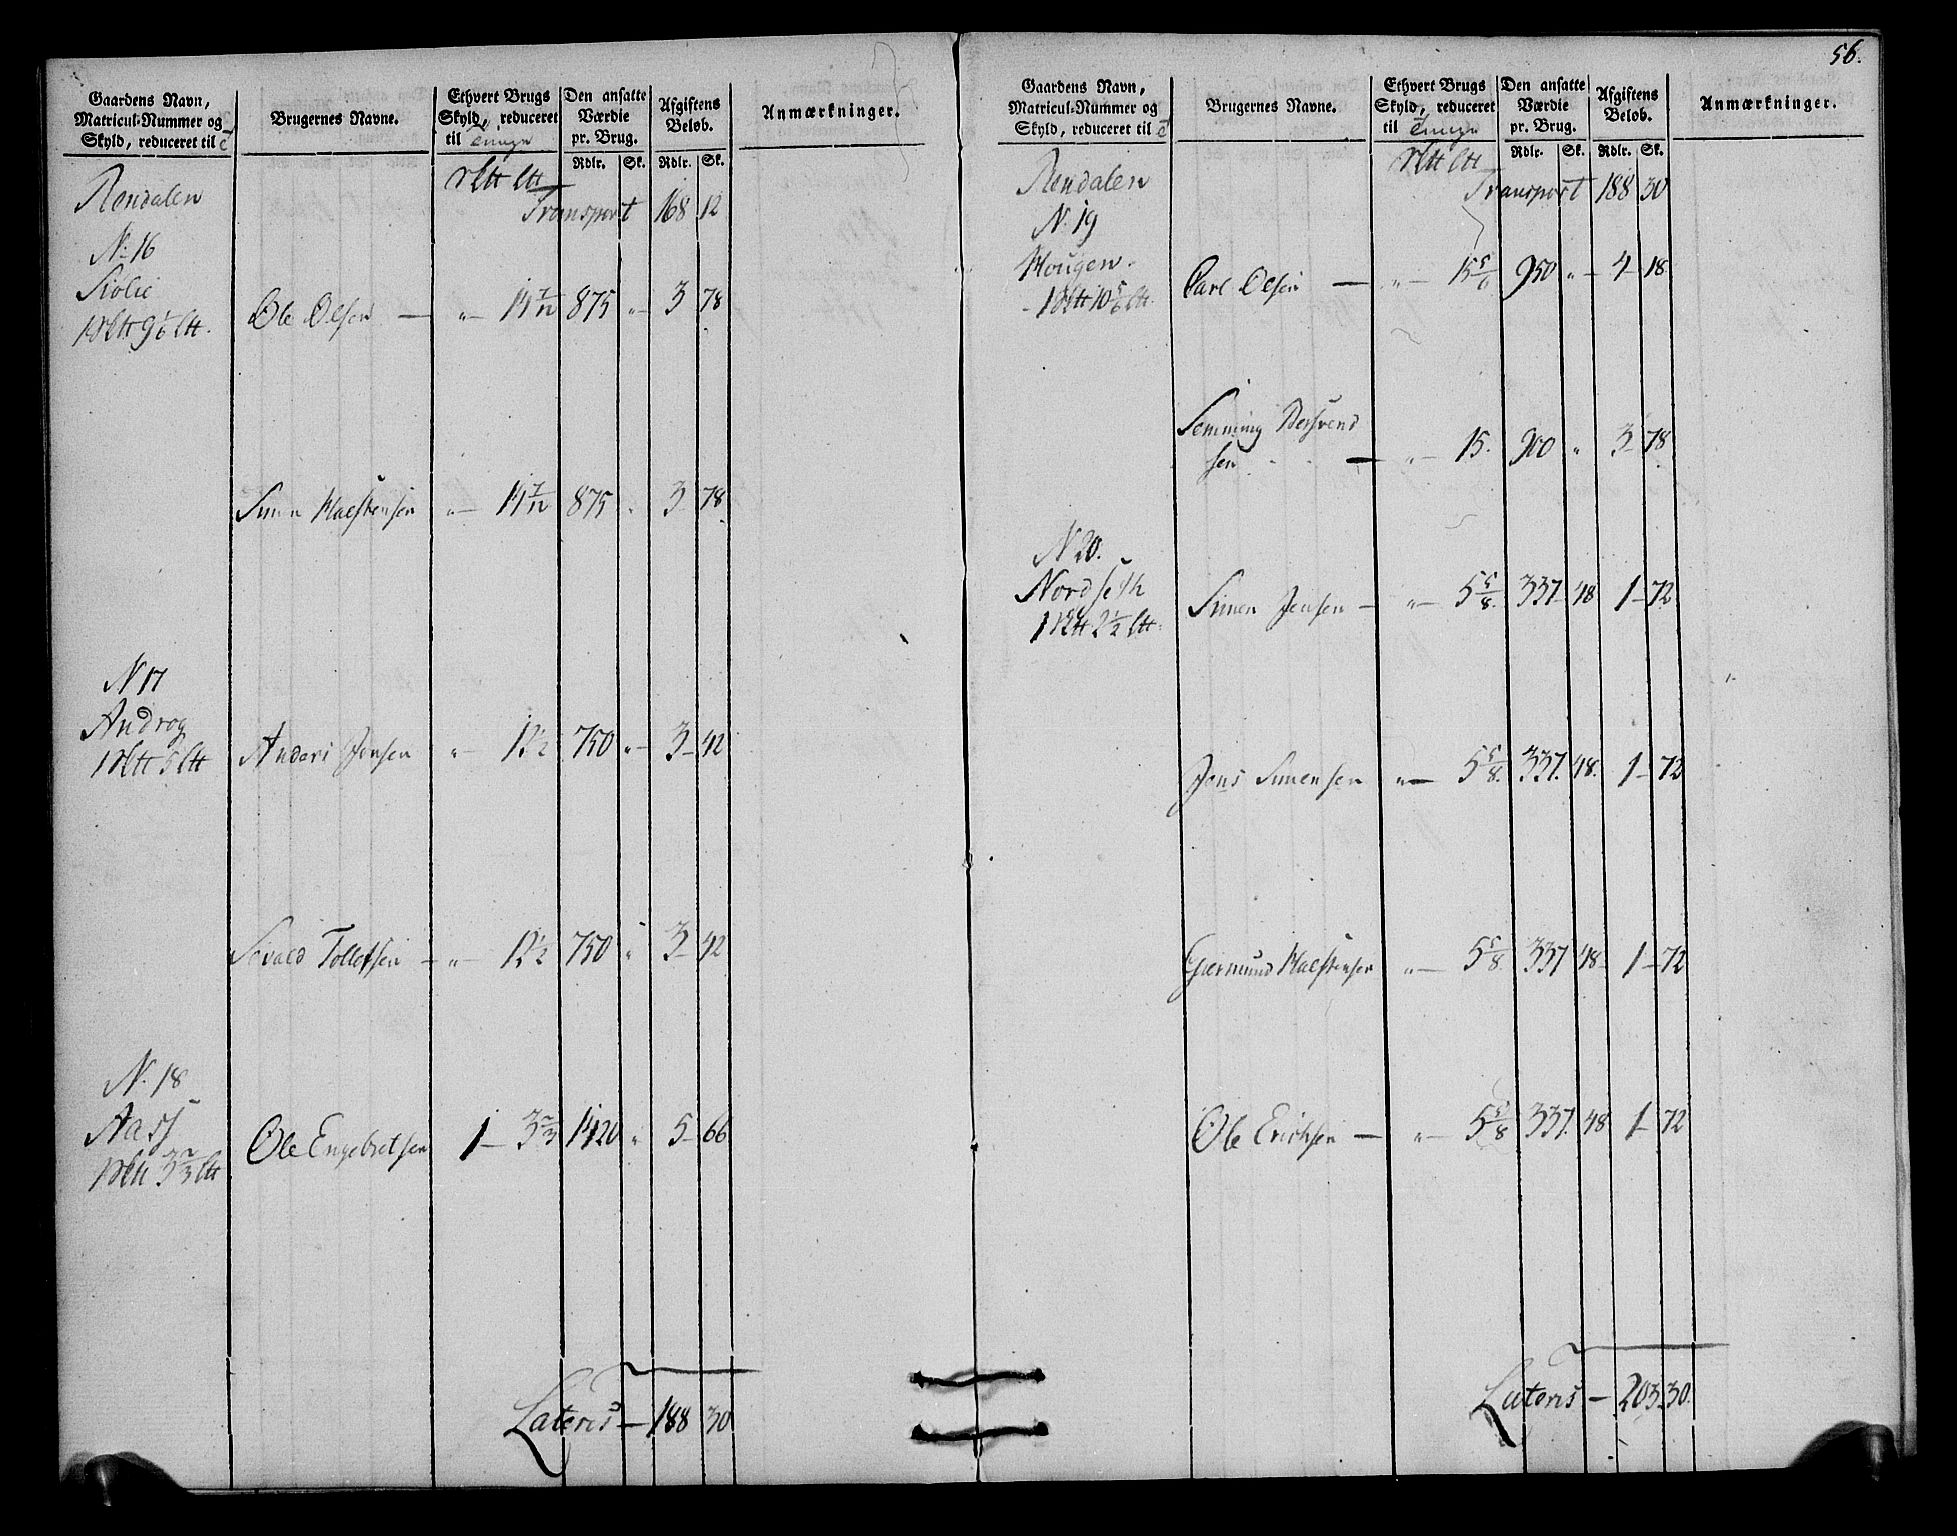 56.
Gaardens Navn, Matricul-Nummer og Skyld, reduceret til
Brugernes Navne.
Ethvert Brugs Skyld, reduceret til Tunge
Den ansatte Værdie pr. Brug.
Afgiftens Beløb.
Anmærkninger.
Rdlr. Sk. Rdlr. Sk.
Rendalen
Transport 168 12
N. 16
Siølie
Ole Olsen — „ — 14 7/12 875 „ — 3 78
9 1/6
Simen Halstensen „ — 14 7/12 875 „ 3 78
N 17
Androg
Anders Jonsen „ — 12 1/2 750 „ — 3 — 42
Sevald Tollefsen — „ — 12 1/2 750 „ 3 — 42
N. 18
Aas
Ole Engebretsen 1 — 3 2/3 1120 „ 5 — 66
Lateris — 188 30
Gaardens Navn, Matricul-Nummer og Skyld, reduceret til
Brugernes Navne.
Ethvert Brugs Skyld, reduceret til Tunge
Den ansatte Værdie pr. Brug.
Afgiftens Beløb.
Anmærkninger.
Rdlr. Sk. Rdlr. Sk.
Rendalen
Transport 188 30
N. 19
Hougen
Carl Olsen — „ — 15 5/6 950 „ — 4 — 18
10 5/6
Semming
sen — „ — 15. 900 „ 3 — 78
N 20.
Nordseth
Simen Jensen — „ — 5 5/8. 337 48 1 — 72
2 1/2
Jens Simensen „ — 5 5/8. 337. 48. 1 — 72
Gjermund Halstensen „ — 5 5/8. 337 48 — 1 — 72
Ole Erichsen — „ — 5 5/8 337. 48 1 — 72
Lateris — 203 30.